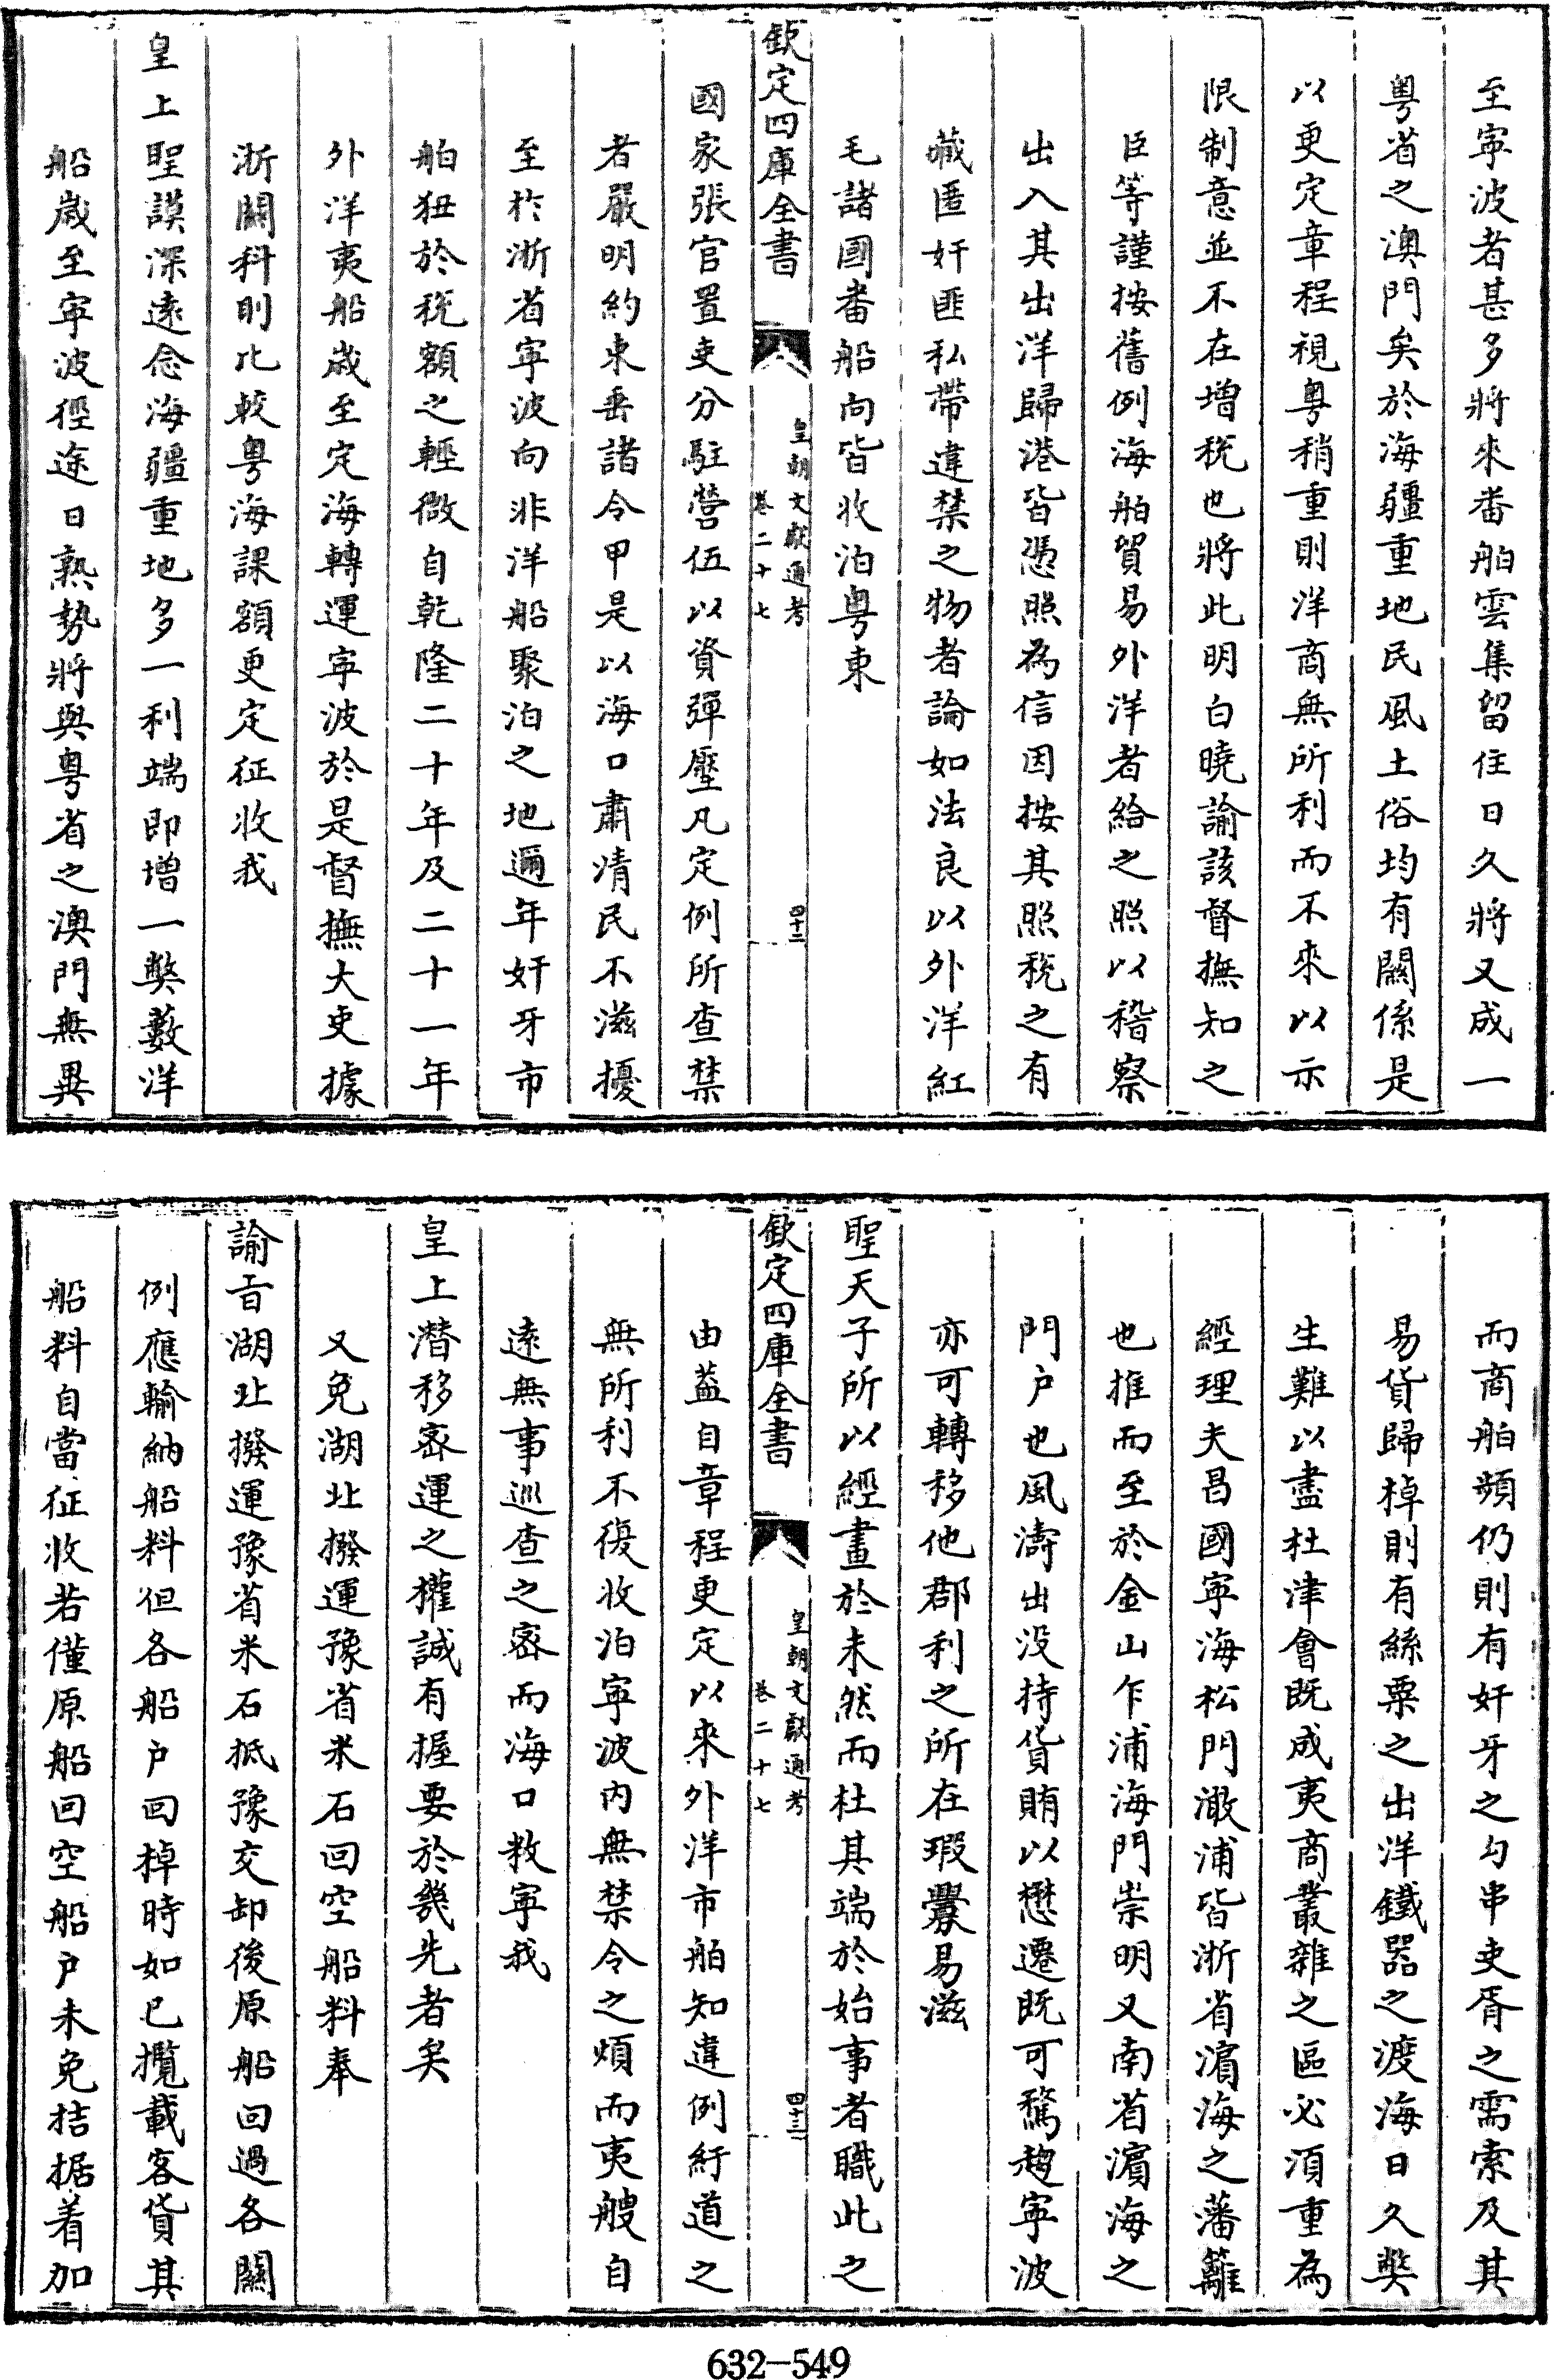 至寧波者甚多將來番舶雲集留住日久將又成一
粤省之澳門矣於海疆重地民風土俗均有關係是
以更定章程視粤稍重則洋商無所利而不來以示
限制意並不在增税也將此明白曉諭該督撫知之
臣等謹按舊例海舶貿易外洋者給之照以稽察
出入其出洋歸港皆憑照為信因按其照税之有
藏匿奸匪私帶違禁之物者論如法良以外洋紅
毛諸國番船向皆收泊粤東
欽定四庫全書
皇朝文獻通考
卷二十七
四十二
國家張官置吏分駐營伍以資彈壓凡定例所查禁
者嚴明約束垂諸令甲是以海口肅清民不滋擾
至於浙省寧波向非洋船聚泊之地邇年奸牙市
舶狃於税額之輕微自乾隆二十年及二十一年
外洋夷船歲至定海轉運寧波於是督撫大吏據
浙關科則比較粤海課額更定征收我
皇上聖謨深遠念海疆重地多一利端即增一獘藪洋
船歲至寧波徑途日熟勢將與粤省之澳門無異
而商舶頻仍則有奸牙之勾串吏胥之需索及其
易貨歸棹則有絲粟之出洋鐵器之渡海日久獘
生難以盡杜津會既成夷商叢雜之區必須重為
經理夫昌國寧海松門澉浦皆浙省濵海之藩籬
也推而至於金山乍浦海門崇明又南省濵海之
門户也風濤出没持貨賄以懋遷既可騖趨寧波
亦可轉移他郡利之所在瑕釁易滋
聖天子所以經畫於未然而杜其端於始事者職此之
欽定四庫全書
皇朝文獻通考
卷二十七
四十三
由葢自章程更定以來外洋市舶知違例紆道之
無所利不復收泊寧波内無禁令之煩而夷艘自
遠無事巡查之宻而海口敉寧我
皇上潛移宻運之權誠有握要於幾先者矣
又免湖北撥運豫省米石回空船料奉
諭旨湖北撥運豫省米石抵豫交卸後原船回過各關
例應輸納船料但各船户回棹時如已攬載客貨其
船料自當征收若僅原船回空船户未免拮据着加
632-549